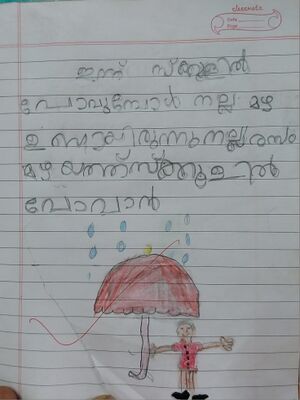 classmate
Date
Page
ഇന്ന് സ്ക്കൂളിൽ
പോവുമ്പോൾ നല്ല മഴ
ഉണ്ടായിരുന്നു നല്ല രസം
മഴയത്ത് സ്ക്കൂളിൽ
പോവാൻ